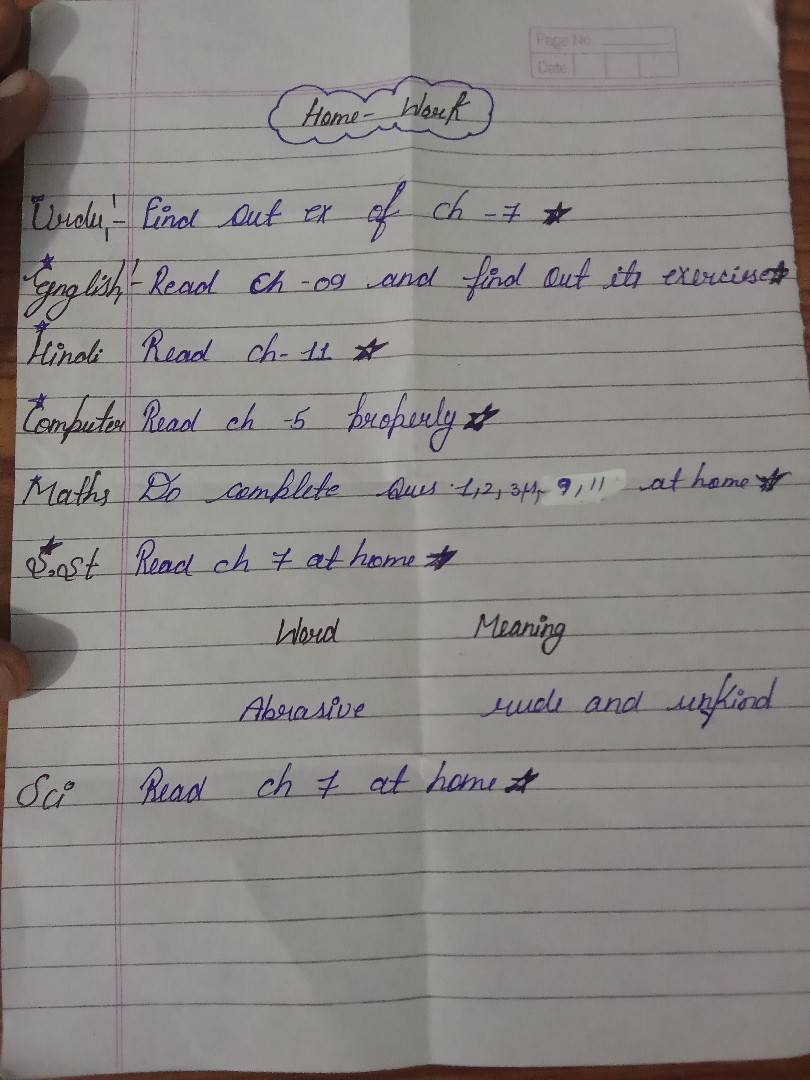 Page No.
Date
Home - Work
Urdu:- Find out ex of ch - 7 ★
English:- Read ch - 09 and find out its exercise ★
Hindi Read ch - 11 ★
Computer Read ch - 5 properly ★
Maths Do complete Ques. 1, 2, 3, 4, 9, 11 at home ★
S.St Read ch 7 at home ★
Word Meaning
Abrasive rude and unkind
Sci Read ch 7 at home ★